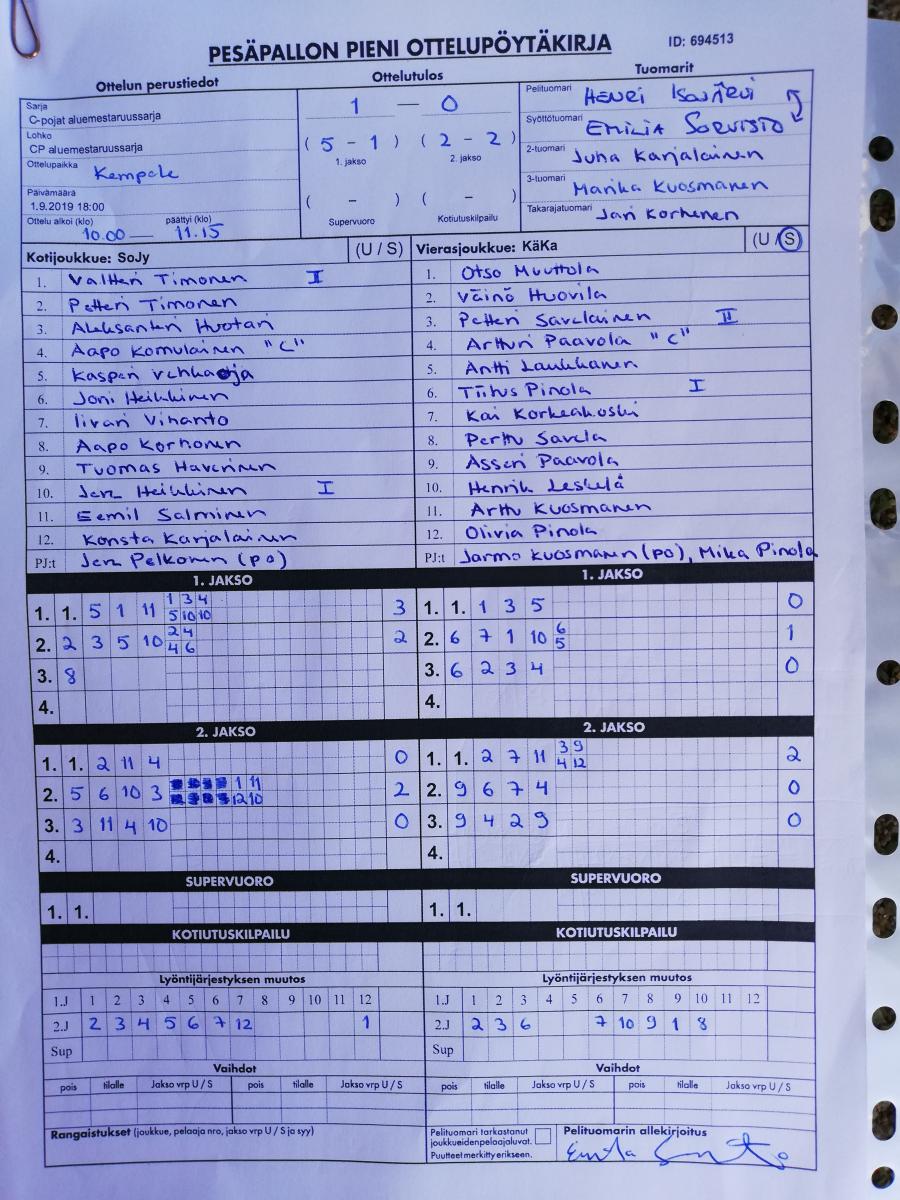 PESÄPALLON PIENI OTTELUPÖYTÄKIRJA ID: 694513
Ottelun perustiedot Ottelutulos Tuomarit
Sarja
C-pojat aluemestaruussarja
Lohko
CP aluemestaruussarja
Ottelupaikka Kempele
Päivämäärä
1.9.2019 18:00
Ottelu alkoi (klo) päättyi (klo)
10.00 — 11.15
1 — 0
( 5 - 1 ) ( 2 - 2 )
1. jakso 2. jakso
( - ) ( - )
Supervuoro Kotiutuskilpailu
Pelituomari HENRI ISOJÄRVI
Syöttötuomari EMILIA SORVISTO
2-tuomari Juha Karjalainen
3-tuomari Marika Kuosmanen
Takarajatuomari Jari Korhonen
Kotijoukkue: SoJy (U / S)
1. Valtteri Timonen I
2. Petteri Timonen
3. Aleksanteri Huotari
4. Aapo Komulainen "C"
5. Kasperi Vehkaoja
6. Joni Heikkinen
7. Iivari Vihanto
8. Aapo Korhonen
9. Tuomas Haverinen
10. Jere Heikkinen I
11. Eemil Salminen
12. Konsta Karjalainen
PJ:t Jere Pelkonen (po)
Vierasjoukkue: KäKa (U / S)
1. Otso Muuttola
2. Väinö Huovila
3. Petteri Savolainen II
4. Artturi Paavola "C"
5. Antti Laukkanen
6. Tiitus Pinola I
7. Kai Korkeakoski
8. Perttu Savela
9. Asseri Paavola
10. Henrik Leskelä
11. Arttu Kuosmanen
12. Olivia Pinola
PJ:t Jarmo Kuosmanen (po), Mika Pinola
1. JAKSO
1. 1. 5 1 11 1 3 4 3
5 10 10
2. 2 3 5 10 2 4 2
4 6
3. 8
4.
1. JAKSO
1. 1. 1 3 5 0
2. 6 7 1 10 6 1
5
3. 6 2 3 4 0
4.
2. JAKSO
1. 1. 2 11 4 0
2. 5 6 10 3 1 11 2
12 10
3. 3 11 4 10 0
4.
2. JAKSO
1. 1. 2 7 11 3 9 2
4 12
2. 9 6 7 4 0
3. 9 4 2 9 0
4.
SUPERVUORO SUPERVUORO
1. 1. 1. 1.
KOTIUTUSKILPAILU KOTIUTUSKILPAILU
Lyöntijärjestyksen muutos
1.J 1 2 3 4 5 6 7 8 9 10 11 12
2.J 2 3 4 5 6 7 12 1
Sup
Lyöntijärjestyksen muutos
1.J 1 2 3 4 5 6 7 8 9 10 11 12
2.J 2 3 6 7 10 9 1 8
Sup
Vaihdot Vaihdot
pois tilalle Jakso vrp U / S pois tilalle Jakso vrp U / S
pois tilalle Jakso vrp U / S pois tilalle Jakso vrp U / S
Rangaistukset (joukkue, pelaaja nro, jakso vrp U / S ja syy)
Pelituomari tarkastanut
joukkueidenpelaajaluvat.
Puutteet merkitty erikseen.
Pelituomarin allekirjoitus